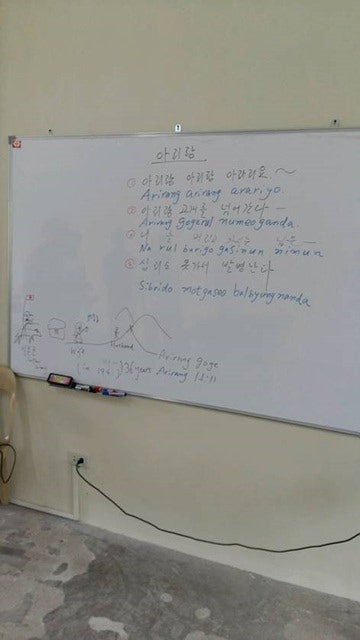 아리랑
① 아리랑 아리랑 아라리요 ~
Arirang arirang arariyo.
② 아리랑 고개를 넘어간다 –
Arirang gogerel numeoganda.
③ 나 를 버리고 가시는 님은 —
Na rul borigo gaSinun nimun
④ 십리도 못가서 발병난다
Sibrido motgaseo balbyungnanda
Wife
Husband
Arirang goge
36 years Arirang